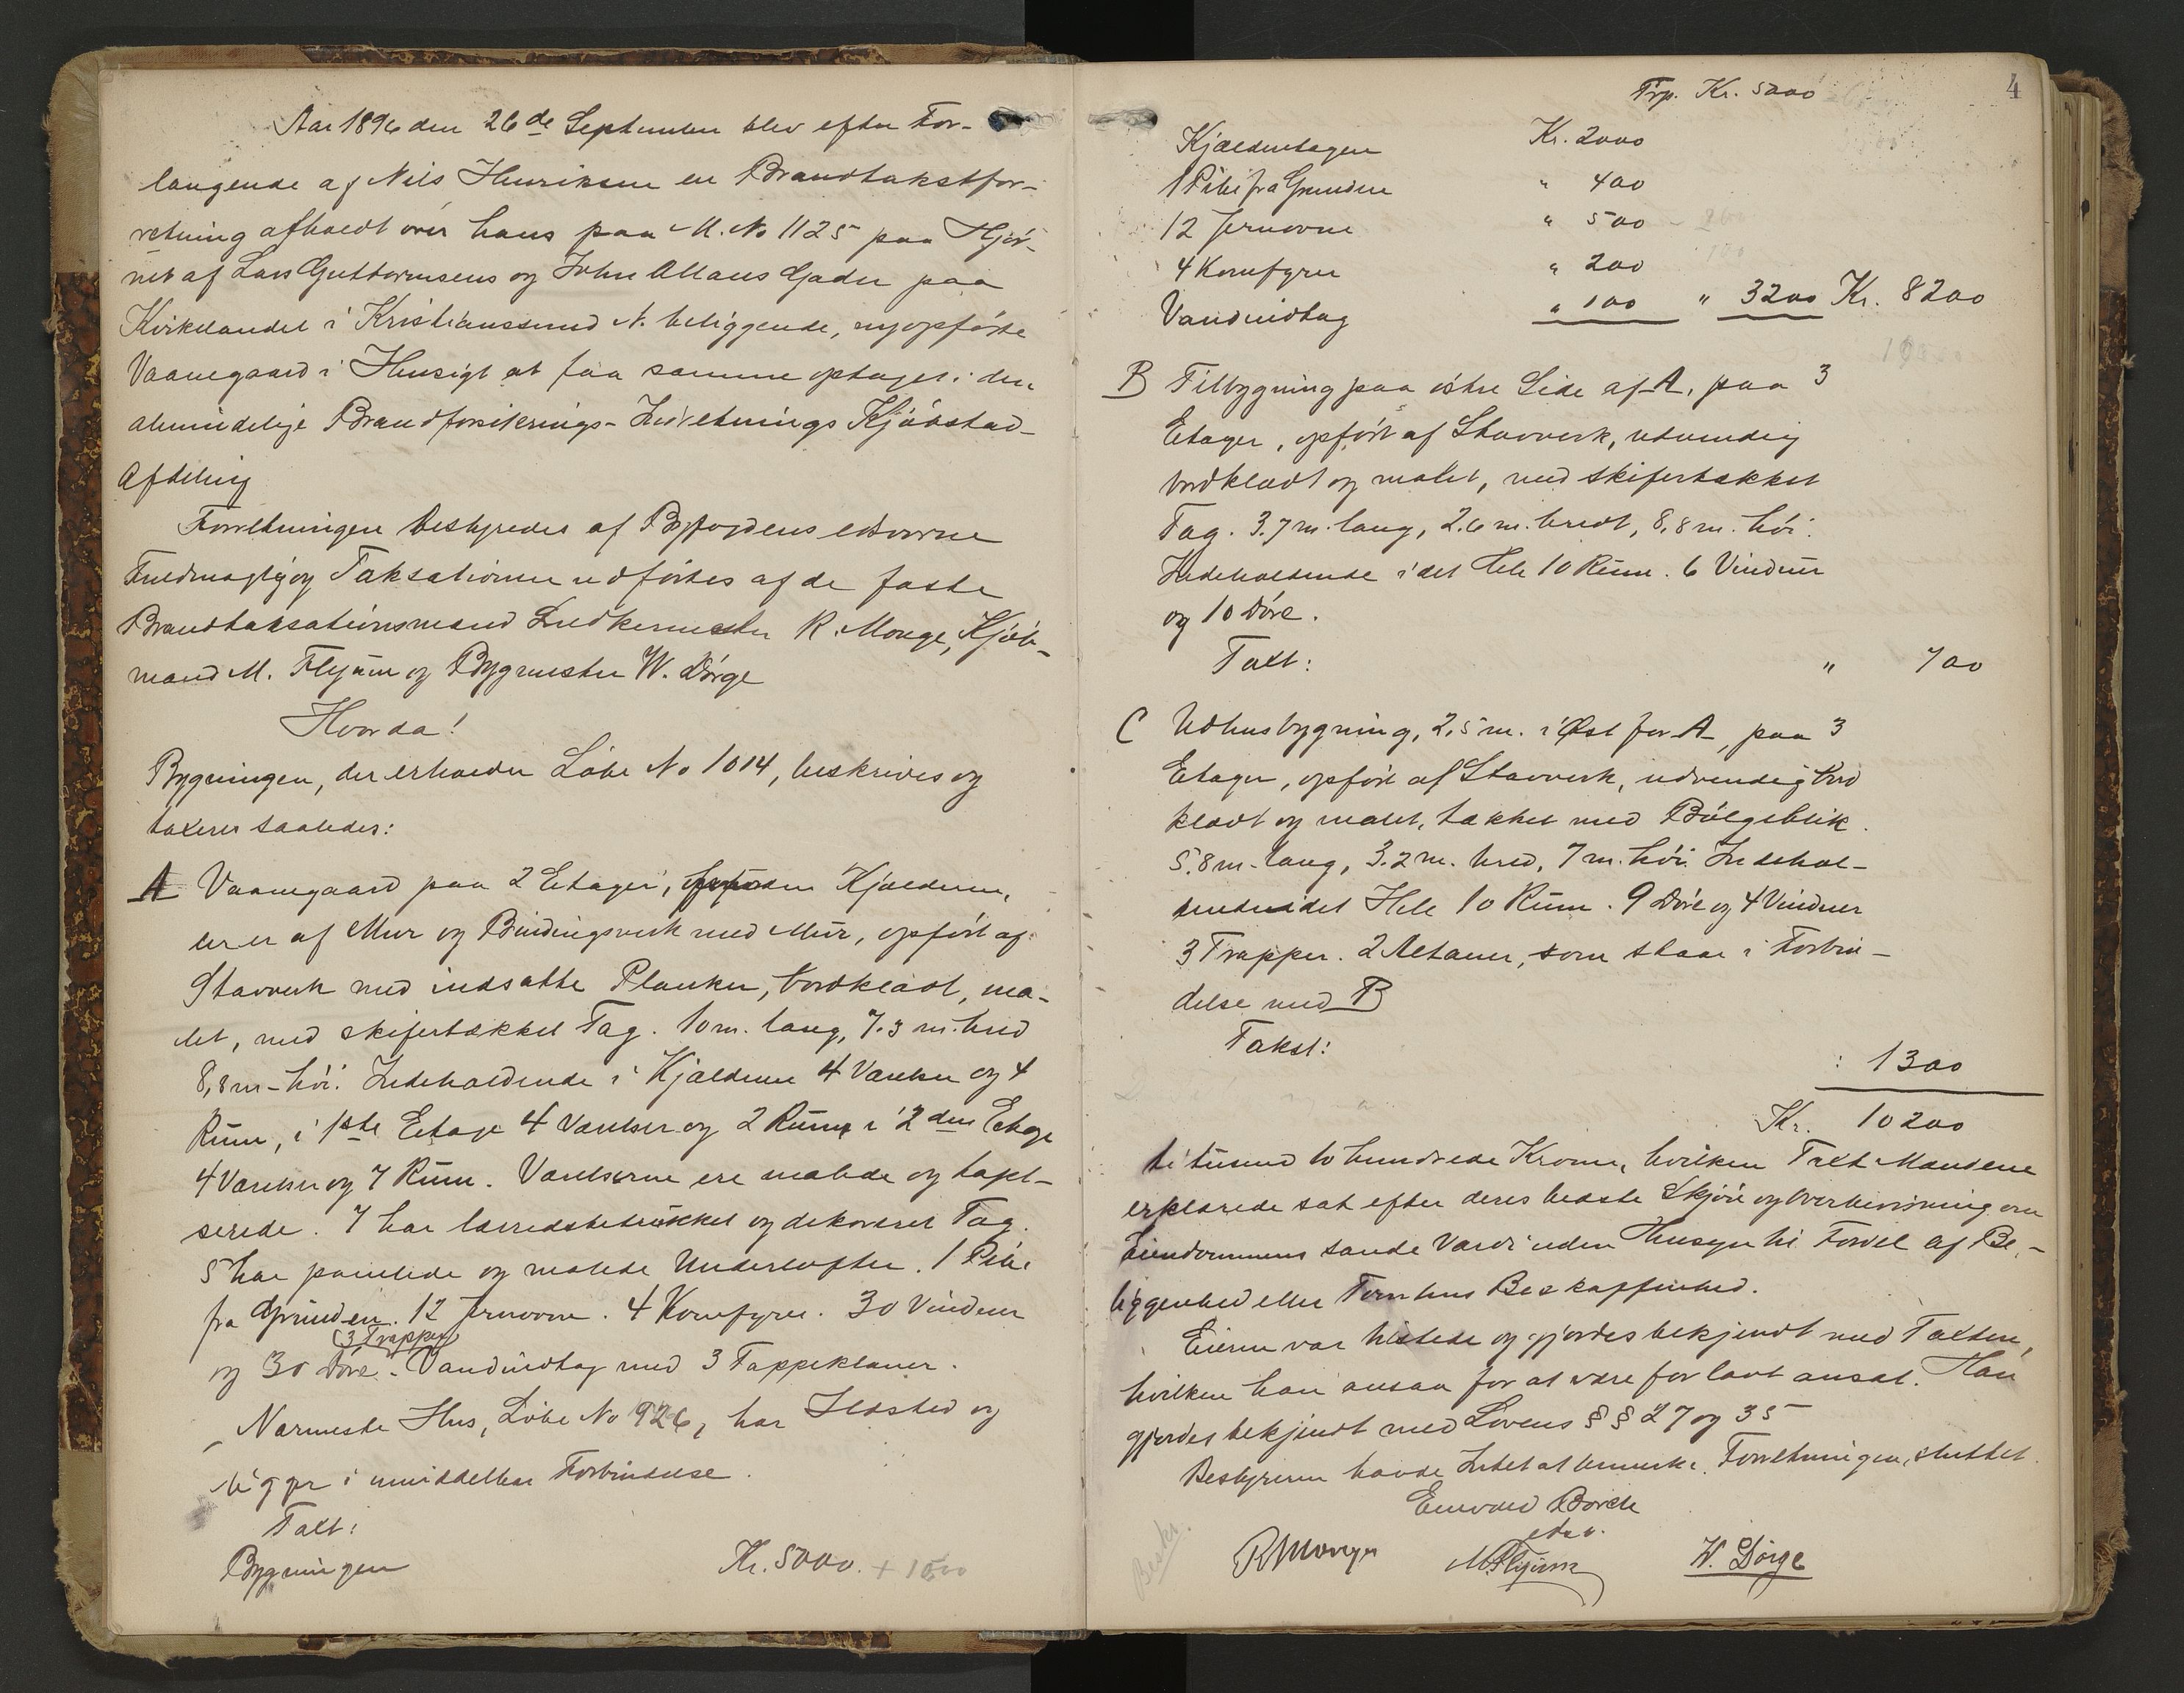 Aar 1896 den 26de September blev efter For-
langende af Nils Henriksen en Brandtakstfor-
retning afholdt over hans paa M. No 1125 paa Hjør-
net af Lars Guttormsens og John Allans Gader paa
Kirkelandet i Kristianssund N. beliggende, nyopførte
Vaanegaard i Hensigt at faa samme optaget i den
almindelige Brandforsikrings-Indretnings Kjøbstad-
Afdeling
Forretningen bestyredes af Byfogdens edsvorne
Fuldmægtig og Taksationen udførtes af de faste
Brandtaksationsmænd Snedkermester R. Monge, Kjøb-
mand M. Flyum og Bygmester W. Dörge
Hvorda!
Bygningen, der erholder Løbe No 1014, beskrives og
taxeres saaledes:
A Vaanegaard paa 2 Etager, foruden Kjælderen,
der er af Mur og Bindingsverk med Mur, opført af
Stavverk med indsatte Planker, bordklædt, ma-
let, med skifertækket Tag. 10 m. lang, 7.3 m. bred
8,8 m. høi. Indeholdende i Kjælderen 4 Værelser og 4
Rum, i 1ste Etage 4 Værelser og 2 Rum, i 2den Etage
4 Værelser og 7 Rum. Værelserne ere malede og tapet-
serede. 7 har lærredsbetrukket og dekoreret Tag.
5 har panelede og malede Underlofter. 1 Pibe
fra Grunden. 12 Jernovne. 4 Komfyrer. 30 Vinduer
(3 Trapper)
og 30 Døre. Vandindtag med 3 Tappekraner.
Nærmeste Hus, Løbe No 926, har Ildsted og
ligger i umiddelbar Forbindelse.
Taxt:
Bygningen Kr. 5000. + 1500
4
Trp. Kr. 5000
Kjælderetagen Kr. 2000
1 Pibe fra Grunden " 400
12 Jernovne " 500
4 Komfyrer " 200
Vandindtag " 100 " 3200 Kr. 8200
B Tilbygning paa østre Side af A, paa 3
Etager, opført af Stavverk, udvendig
bordklædt og malet, med skifertækket
Tag. 3.7 m. lang, 2.6 m. bredt, 8,8 m. høi.
Indeholdende i det Hele 10 Rum. 6 Vinduer
og 10 Døre.
Taxt: " 700
C Udhusbygning, 2,5 m. i Øst for A, paa 3
Etager, opført af Stavverk, udvendig bord
klædt og malet, tækket med Bølgeblik.
5.8 m. lang, 3.2 m. bred, 7 m. høi. Indehol-
dende i det Hele 10 Rum. 9 Døre og 4 Vinduer
3 Trapper. 2 Altaner, som staar i Forbin-
delse med B
Takst:
: 1300
Kr. 10200
ti tusend to hundrede Kroner, hvilken Taxt Mændene
erklærede sat efter deres bedste Skjøn og Overbevisning om
Eiendommens sande Værdi uden Hensyn til Fordel af Be-
liggenhed eller Tomtens Beskaffenhed.
Eieren var tilstede og gjordes bekjendt med Taxten,
hvilken han ansaa for at være for lavt ansat. Han
gjordes bekjendt med Lovens § § 27 og 35
Bestyreren havde Intet at bemærke. Forretningen sluttet.
Edvard Borch
edsv.
R Monge M. Flyum W. Dörge
Beskr.